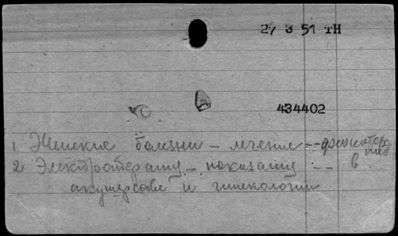 27 3 51 TH
434402
1 Женские болезни - лечение -- физиотерапия
2 Электротерапия - показания -- в
акушерстве и гинекологии